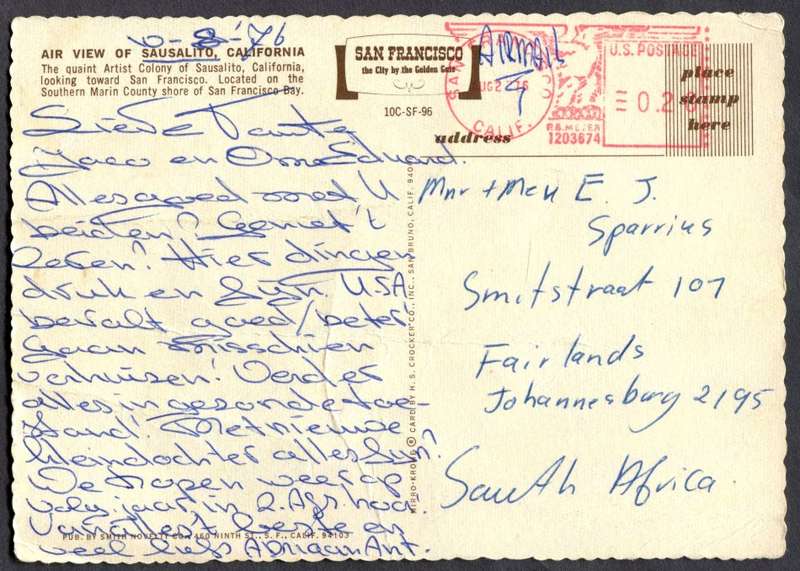 10-8-'76
AIR VIEW OF SAUSALITO, CALIFORNIA
The quaint Artist Colony of Sausalito, California,
looking toward San Francisco. Located on the
Southern Marin County shore of San Francisco Bay.
SAN FRANCISCO
the City by the Golden Gate
10C-SF-96
AIRMAIL
CALIF.
U.S. POSTAGE
P.B. METER
1203674
place
stamp
here
address
Lieve Tante
Jaco en Oom Eduard.
Alles goed met U
beiden? Geniet 't
leven? Hier dingen
druk en fijn, USA
bevalt goed/beter
gaan misschien
verhuizen! Verder
alles in gezonde toe-
stand! Met nieuwe
kleindochter alles fijn?
We hopen weer op
volg. jaar in Z. Afr.
beste en
veel liefs Adriaan Ant.
Mnr + Mev E. J.
Sparrius
Smitstraat 107
Fairlands
Johannesburg 2195
South Africa
MIRRO-KROME ® CARD BY H. S. CROCKER CO., INC., SAN BRUNO, CALIF. 940
PUB. BY SMITH NOVELTY CO., 460 NINTH ST., S. F., CALIF. 94103